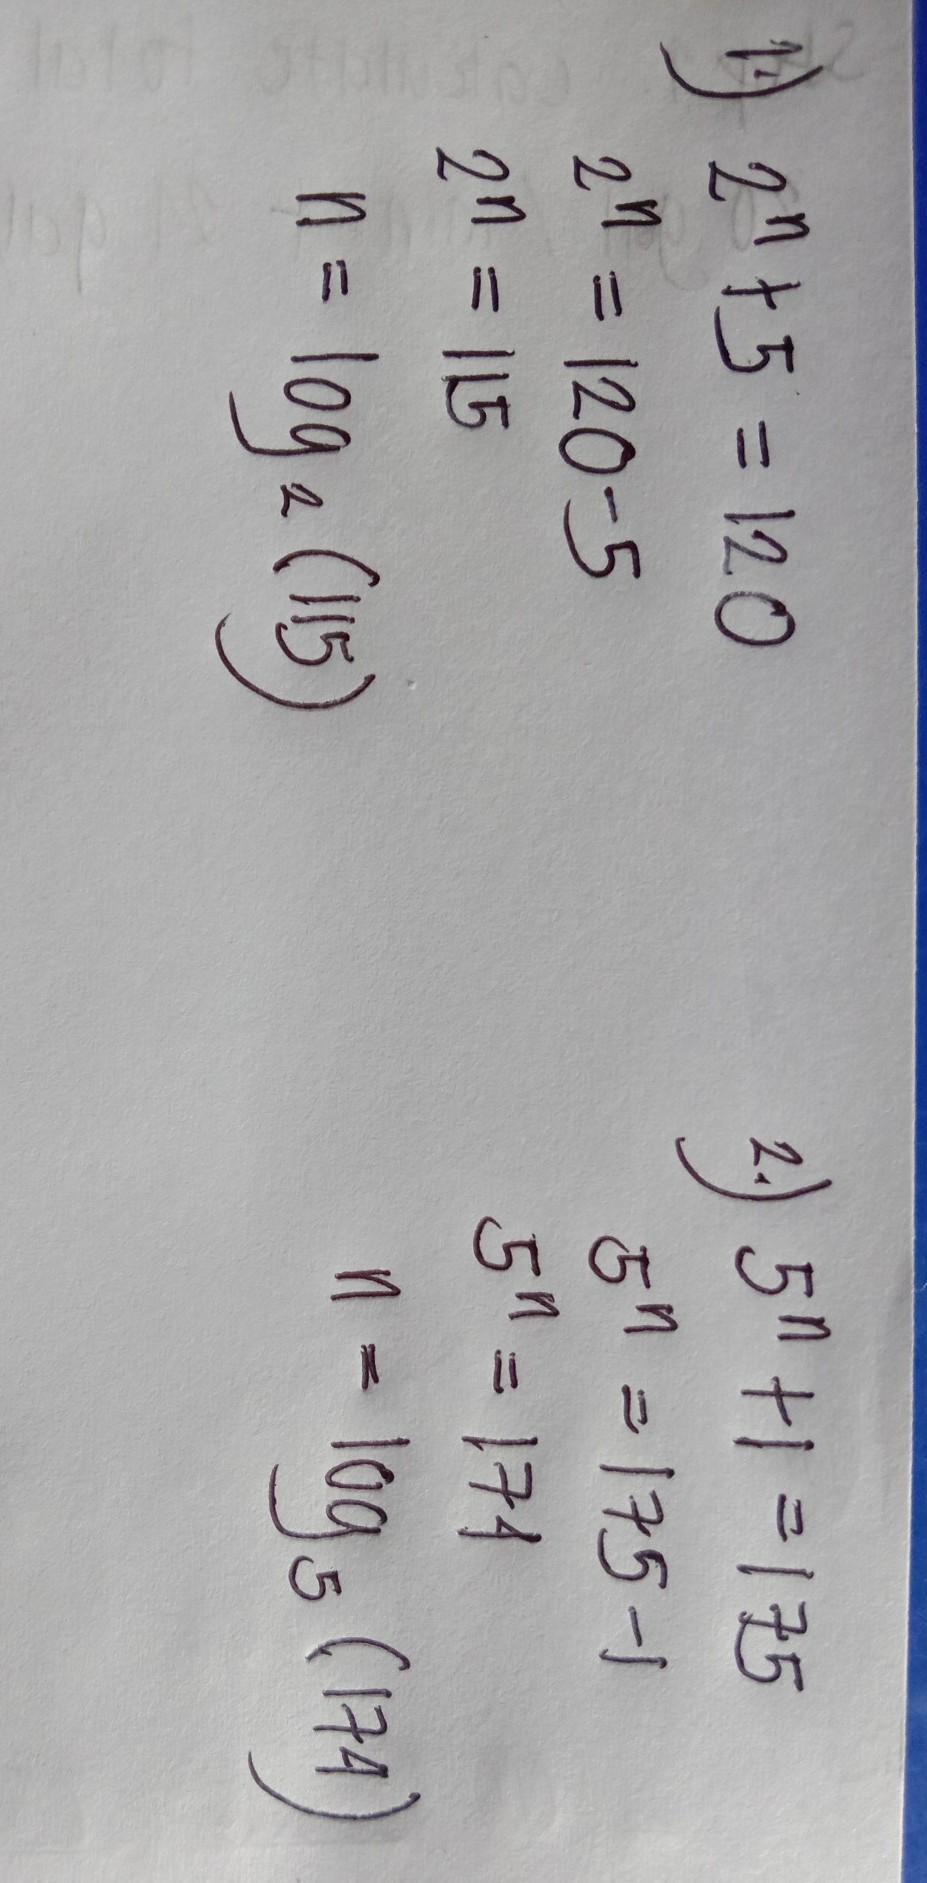 1.) 2ⁿ + 5 = 120
2ⁿ = 120 - 5
2ⁿ = 115
n = log₂ (115)
2.) 5ⁿ + 1 = 175
5ⁿ = 175 - 1
5ⁿ = 174
n = log₅ (174)